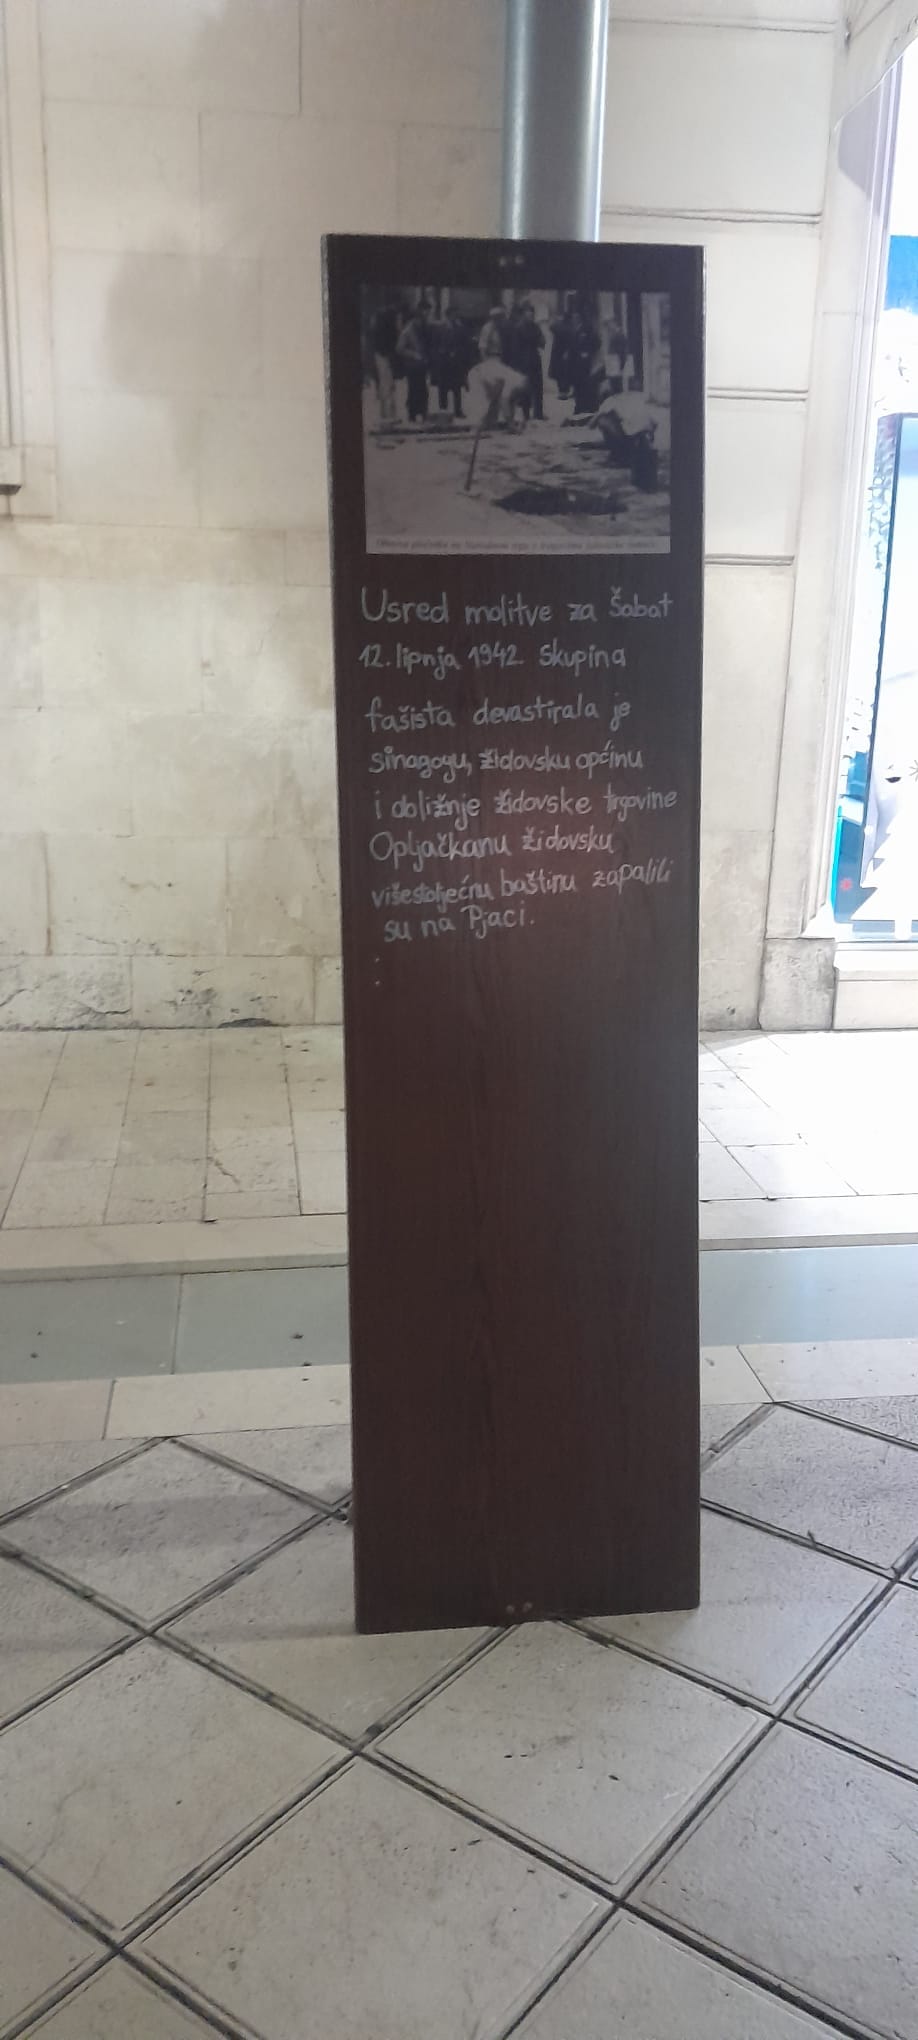 Usred molitve za Šabat
12. lipnja 1942. Skupina
fašista devastirala je
sinagogu, židovsku općinu
i obližnje židovske trgovine
Opljačkanu židovsku
višestoljećnu baštinu zapalili
su na Pjaci.